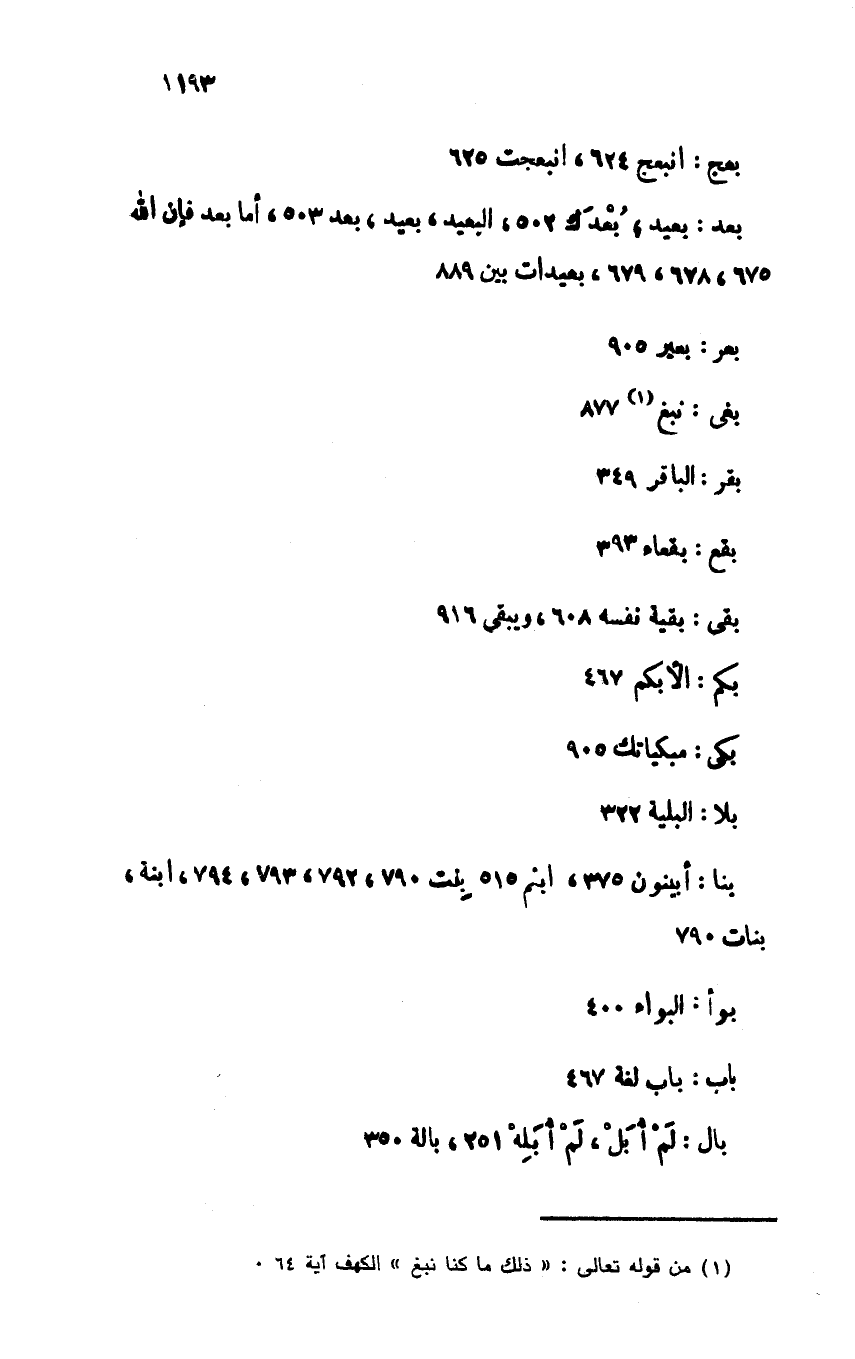 ١١٩٣
بعج : انبعج ٦٢٤ ، انبعجت ٦٢٥
بعد : بعيد ، بُعْدَك ٥٠٢ ، البعيد ، بعيد ، بعد ٥٠٣ ، أما بعد فإن الله
٦٧٥ ، ٦٧٨ ، ٦٧٩ ، بعيدات بين ٨٨٩
بعر : بعير ٩٠٥
بغى : نبغ (١) ٨٧٧
بقر : الباقر ٣٤٩
بقع : بقعاء ٣٩٣
بقى : بقية نفسه ٦٠٨ ، ويبقي ٩١٦
بكم : الأبكم ٤٦٧
بكى : مبكياتك ٩٠٥
بلا : البلية ٣٢٢
بنا : أبينون ٣٧٥ ، ابنم ٥١٥ بِنت ٧٩٠ ، ٧٩٢ ، ٧٩٣ ، ٧٩٤ ، ابنة ،
بنات ٧٩٠
بوأ : البواء ٤٠٠
باب : باب لغة ٤٦٧
بال : لَمْ أُبَلْ ، لَمْ أُبَلِهْ ٢٥١ ، بالة ٣٥٠
(١) من قوله تعالى : « ذلك ما كنا نبغ » الكهف آية ٦٤ ٠